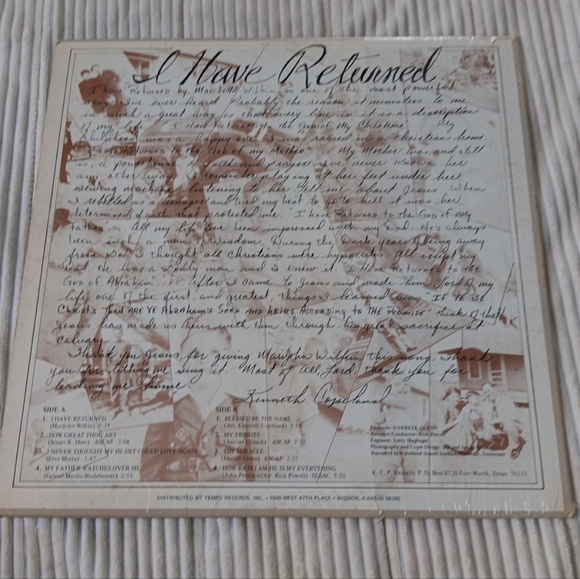 I Have Returned
I have Returned by Marijohn Wilkin is one of the most powerful
songs I've ever heard. Probably the reason it ministers to me
in such a great way is that every line in it is a description
of my life. I Have Returned to the God of My Childhood. My
childhood was a happy one. I was raised in a Christian home.
I have returned to the God of my Mother. My Mother was, and still
is, a powerhouse of faith and prayer. I've never known her
any other way. I remember playing at her feet under her
sewing machine listening to her tell me about Jesus. When
I rebelled as a teenager and tried my best to go to hell it was her
determined faith that protected me. I have Returned to the God of my
Father. All my life I've been impressed with my Dad. He's always
been such a man of wisdom. During the dark years of being away
from God I thought all Christians were hypocrites. All except my
Dad. He was a Godly man and I knew it. I Have Returned to the
God of Abraham. After I came to Jesus and made Him Lord of my
life one of the first, and greatest, things I learned was If Ye Be
Christ's Then ARE YE ABRAHAM'S SEED AND HEIRS ACCORDING TO THE PROMISE. Think of that
Jesus has made us heirs with Him through his great sacrifice at
Calvary.
Thank you Jesus for giving Marijohn Wilkin this song. Thank
you for letting me sing it. Most of All, Lord, thank you for
leading me home.
Kenneth Copeland
SIDE A
1. I HAVE RETURNED
(Marijohn Wilkin)
2. HOW GREAT THOU ART
(Stuart K. Hine) ASCAP
3. I NEVER THOUGHT MY HEART COULD LOVE AGAIN
4. MY FATHER WATCHES OVER ME
SIDE B
1. BLESSED BE THE NAME
(Arr. Kenneth Copeland)
2. MY TRIBUTE
(Andrae Crouch) ASCAP
3. THE MIRACLE
ASCAP
4. HOW RICH I AM/HE IS MY EVERYTHING
Producer: DARRELL GLENN
K. C. P. Records P. O. Box 8720 Fort Worth, Texas 76112
DISTRIBUTED BY TEMPO RECORDS, INC. • 1900 WEST 47TH PLACE • MISSION, KANSAS 66205